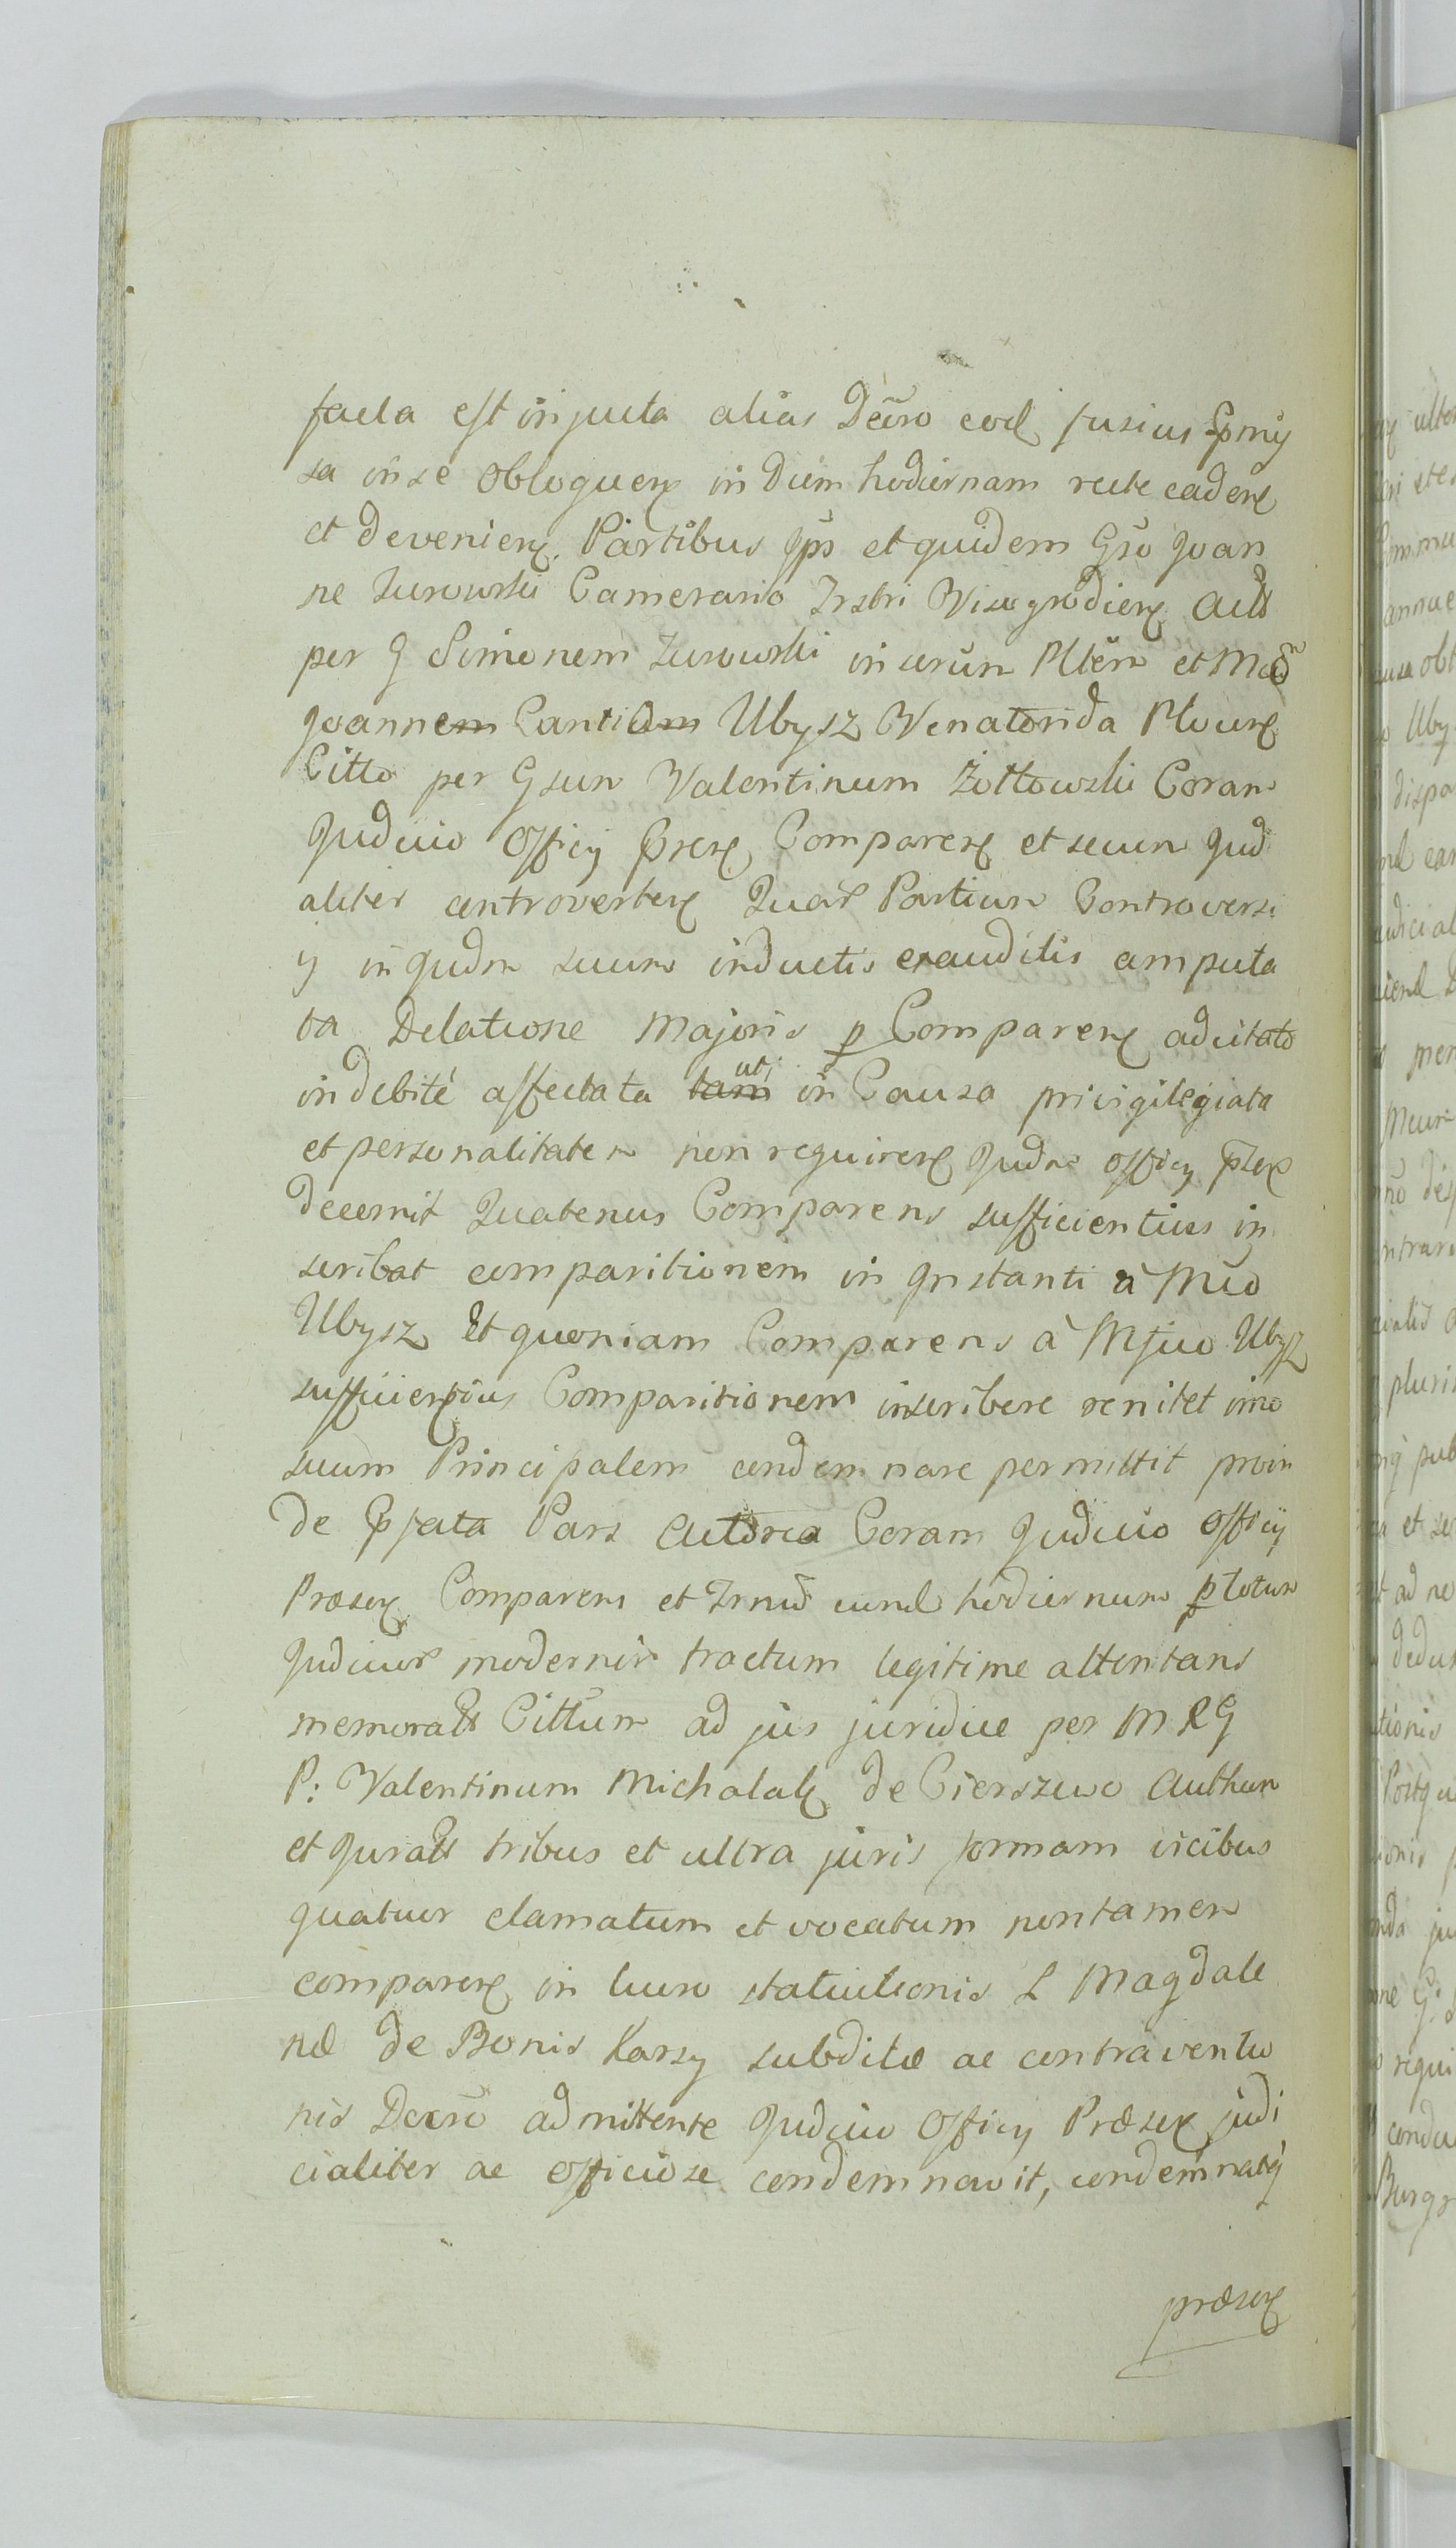 facta est injuncta alias Decro eod fusius pmis
sa in se obloquen in Diem hodiernam recte caden
et devenien. Partibus ips et quidem Gso Joan
ne Zurowski Camerario Trstri Visogrodien Actt
per G Simonem Zurowski inserun Plten et Mcd
Joannem Cantium Ubysz Venatorida Plocen
Citto per Gsum Valentinum Żółtowski Coram
Judicio Officij prsen Comparen et secum Jud
aliter controverten Quar Partium Controversi
ij in Judm suum inductis exauditis amputa
ta Delatione Majoris p Comparen adcitato
indebité affectata tam ut in Causa privigilegiata
et personalitatem non requiren Judm officij pzen
decernit Quatenus Comparens sufficientius in
scribat comparitionem in Instanti à Mco
Ubysz Et quoniam Comparens à Mfco Ubysz
sufficientius Comparitionem inscribere renitet imo
suum Principalem condemnare permittit proin
de pfata Pars Actorea Coram Judicio Officij
Præsen Comparens et Trnum eund hodiernum p totum
Judicior modernor tractum legitime attentans
memoratt Cittum ad jus juridice per M R G
P: Valentinum Michalak de Cierszewo Authen
et Juratt tribus et ultra juris formam vicibus
quatuor clamatum et vocatum non tamen
comparen in lucro statuitionis L Magdale
næ de Bonis Karsy subditæ ac contraventio
nis Decro admittente Judicio Officij Præsen judi
cialiter ac officiose condemnavit, condemnatq
præsen